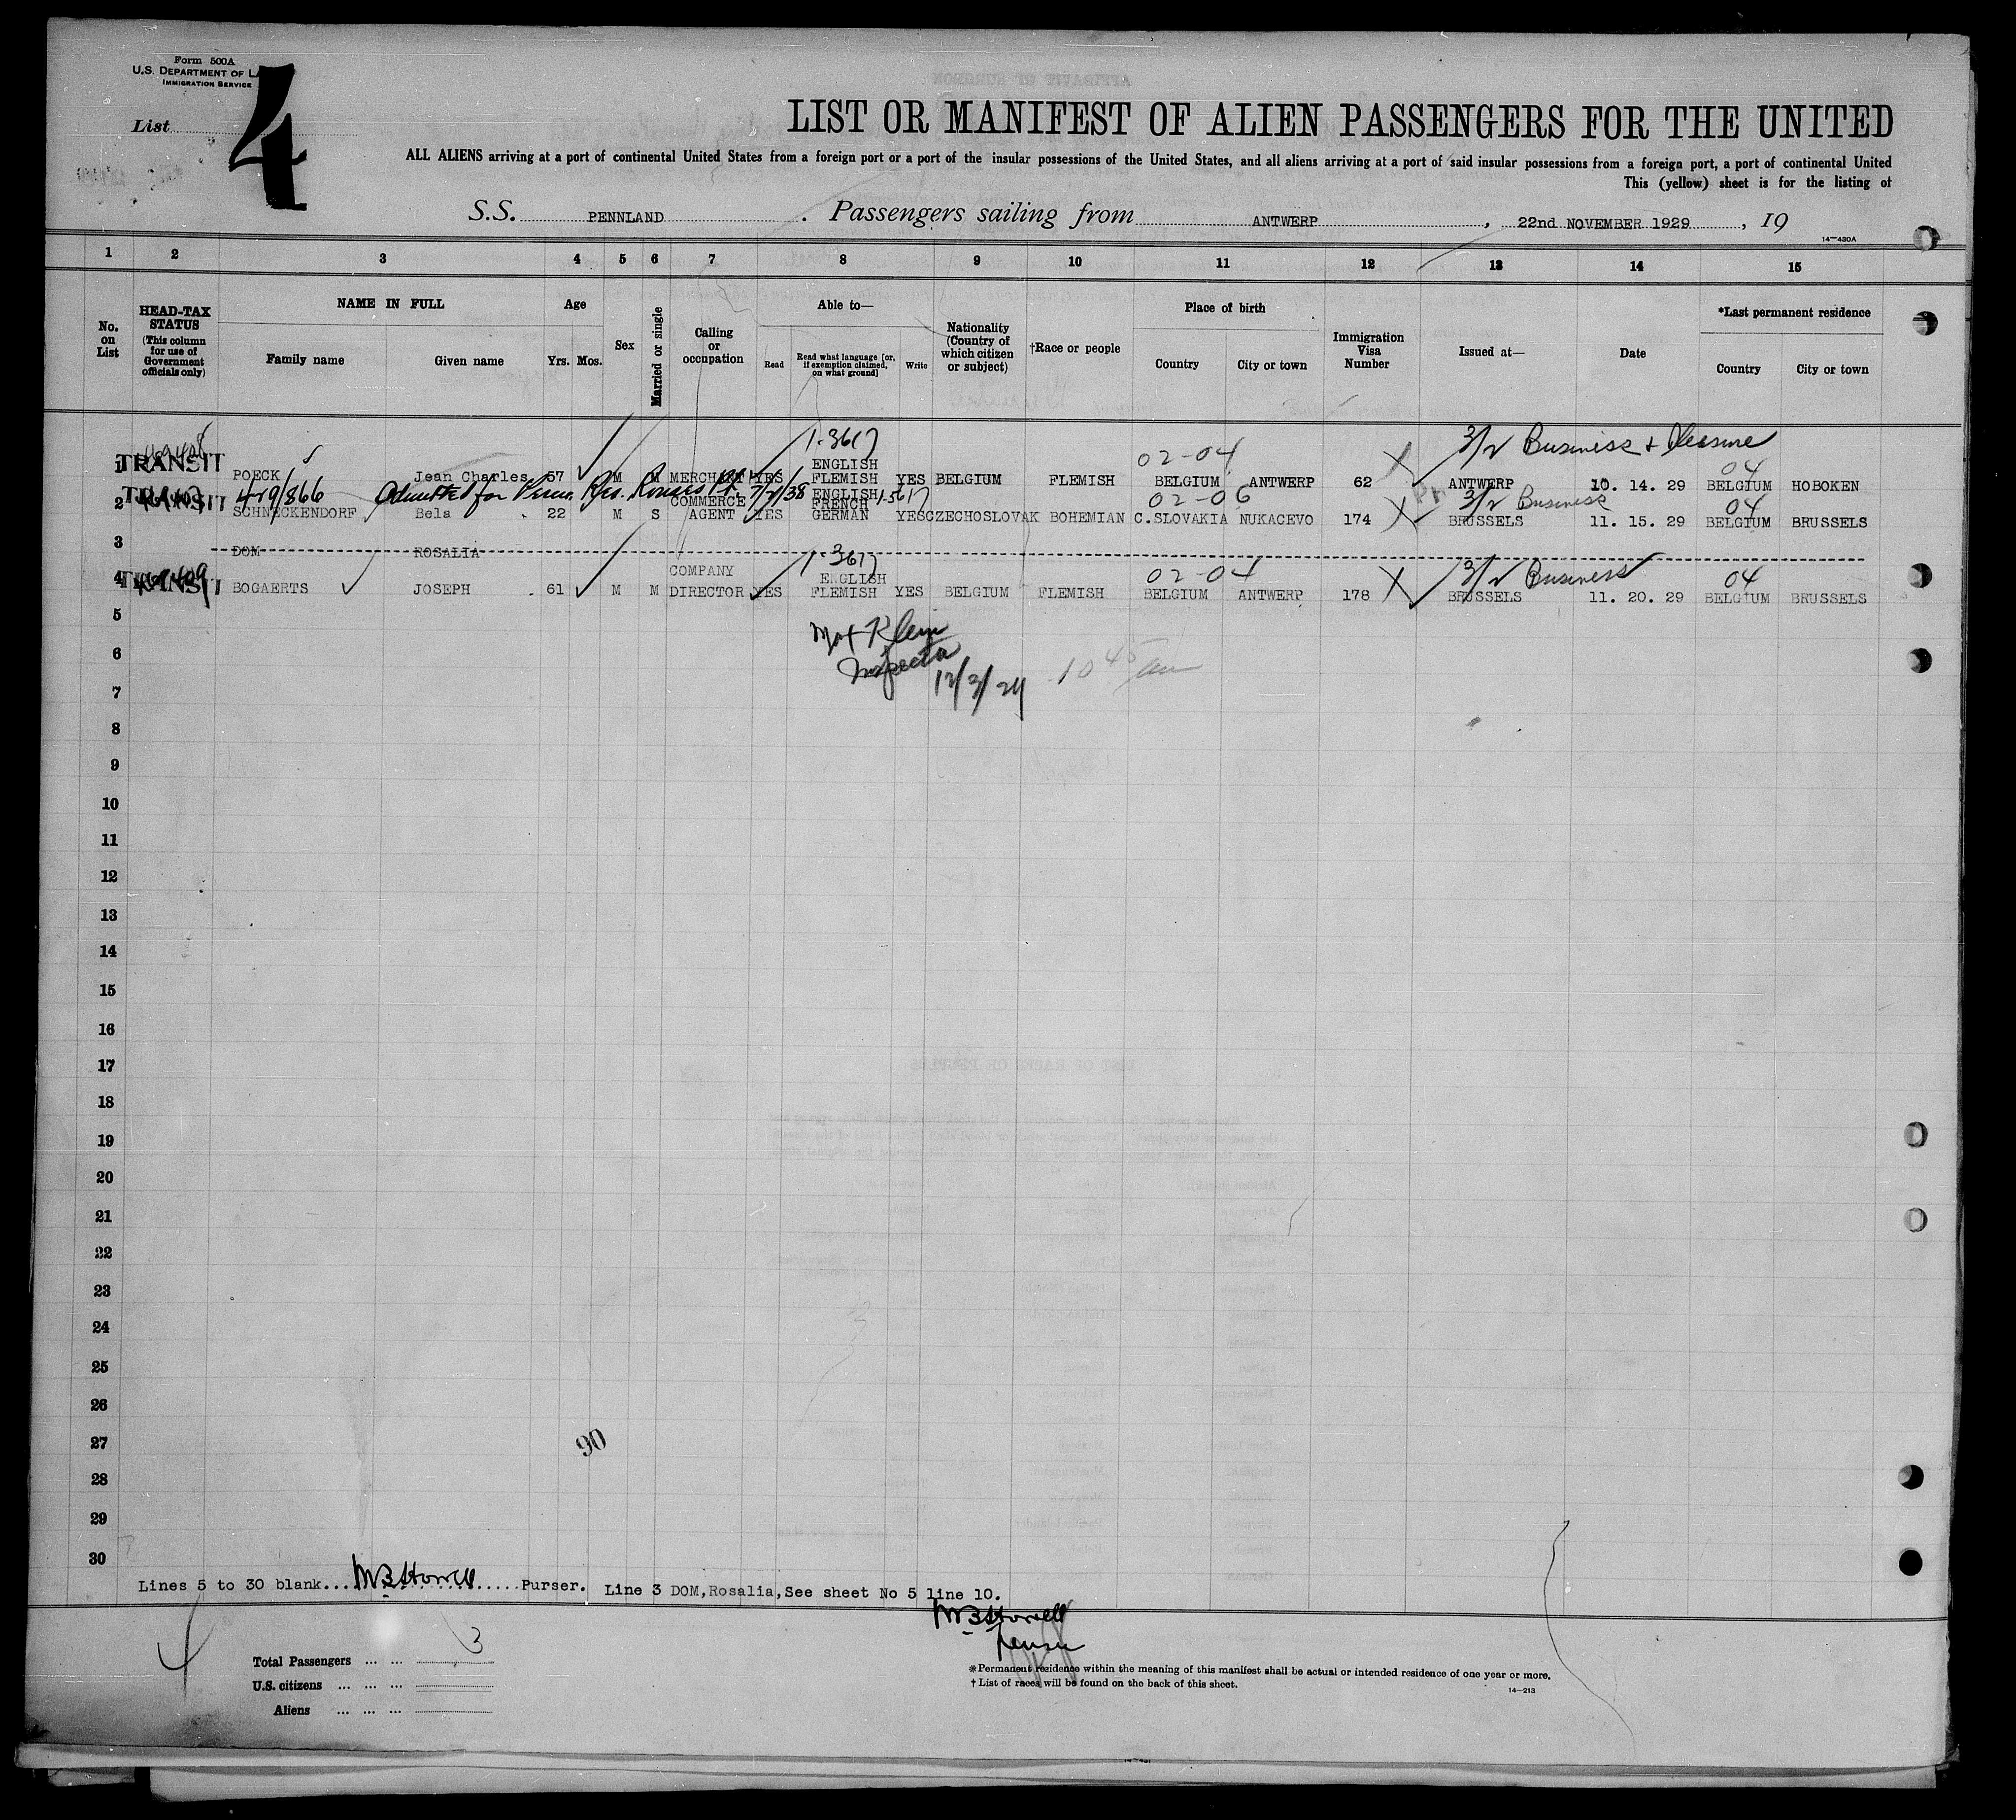 Form 500A
U.S. DEPARTMENT OF
IMMIGRATION SERVICE
List 4
LIST OR MANIFEST OF ALIEN PASSENGERS FOR THE UNITED
ALL ALIENS arriving at a port of continental United States from a foreign port or a port of the insular possessions of the United States, and all aliens arriving at a port of said insular possessions from a foreign port, a port of continental United
This (yellow) sheet is for the listing of
S.S. PENNLAND. Passengers sailing from ANTWERP, 22nd NOVEMBER 1929, 19
14-430A
1 2 3 4 5 6 7 8 9 10 11 12 13 14 15
No. on List
HEAD-TAX STATUS (This column for use of Government officials only)
NAME IN FULL
Family name Given name
Age
Yrs. Mos.
Sex
Married or single
Calling or occupation
Able to—
Read Read what language [or, if exemption claimed, on what ground] Write
Nationality (Country of which citizen or subject)
†Race or people
Place of birth
Country City or town
Immigration Visa Number
Issued at—
Date
*Last permanent residence
Country City or town
1-3617 02-04 3/2 Business & Pleasure 04
1 TRANSIT POECK Jean Charles 57 M M MERCHANT YES ENGLISH FLEMISH YES BELGIUM FLEMISH BELGIUM ANTWERP 62 ANTWERP 10. 14. 29 BELGIUM HOBOKEN
419/866 Admitted for Perm. Res. Rouses Pt. 7/7/38 1-5617 02-06 3/2 Business 04
2 TRANSIT SCHNECKENDORF Bela 22 M S COMMERCE AGENT YES ENGLISH FRENCH GERMAN YES CZECHOSLOVAK BOHEMIAN C.SLOVAKIA NUKACEVO 174 BRUSSELS 11. 15. 29 BELGIUM BRUSSELS
3 DOM ROSALIA
1-3617 02-04 3/2 Business 04
4 TRANSIT BOGAERTS JOSEPH 61 M M COMPANY DIRECTOR YES ENGLISH FLEMISH YES BELGIUM FLEMISH BELGIUM ANTWERP 178 BRUSSELS 11. 20. 29 BELGIUM BRUSSELS
5
Max Klein
6
Inspector
12/3/29 10 45 am
7
8
9
10
11
12
13
14
15
16
17
18
19
20
21
22
23
24
25
26
27
90
28
29
30
Lines 5 to 30 blank.... Purser. Line 3 DOM,Rosalia,See sheet No 5 line 10.
Purser
Total Passengers ... ... 3
U.S. citizens ... ... ...
Aliens ... ... ...
*Permanent residence within the meaning of this manifest shall be actual or intended residence of one year or more.
† List of races will be found on the back of this sheet.
14-213